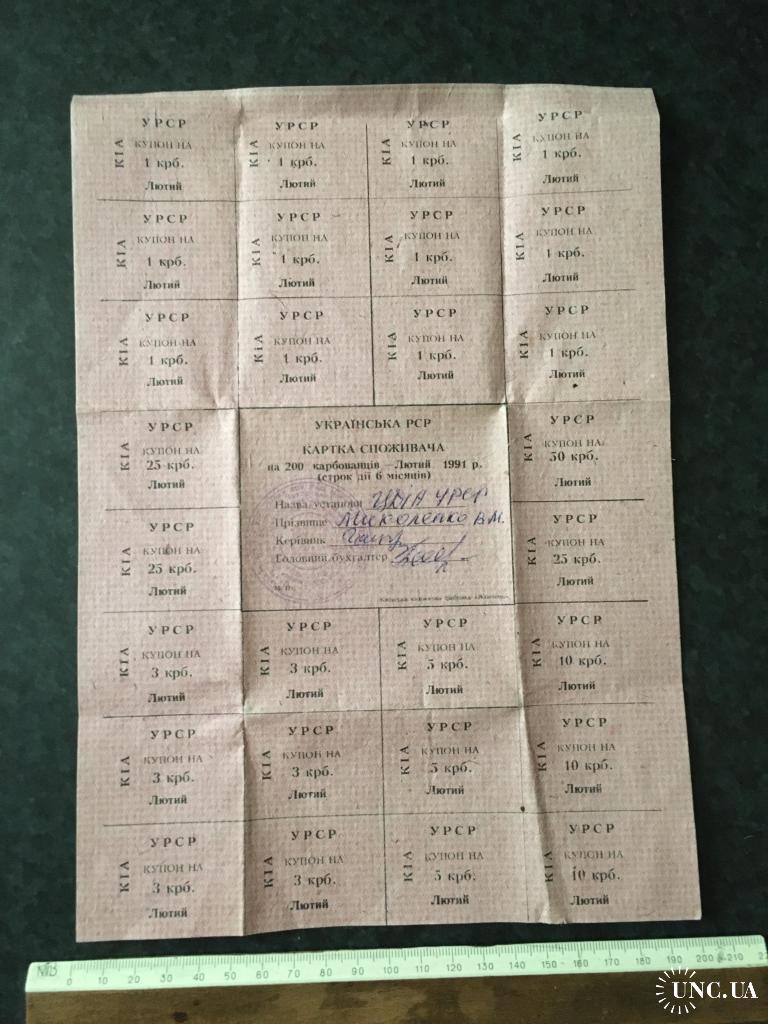 УРСР
КІА
КУПОН НА
1 крб.
Лютий
УРСР
КІА
КУПОН НА
1 крб.
Лютий
УРСР
КІА
КУПОН НА
1 крб.
Лютий
УРСР
КІА
КУПОН НА
1 крб.
Лютий
УРСР
КІА
КУПОН НА
1 крб.
Лютий
УРСР
КІА
КУПОН НА
1 крб.
Лютий
УРСР
КІА
КУПОН НА
1 крб.
Лютий
УРСР
КІА
КУПОН НА
1 крб.
Лютий
УРСР
КІА
КУПОН НА
1 крб.
Лютий
УРСР
КІА
КУПОН НА
1 крб.
Лютий
УРСР
КІА
КУПОН НА
1 крб.
Лютий
УРСР
КІА
КУПОН НА
1 крб.
Лютий
УРСР
КІА
КУПОН НА
25 крб.
Лютий
УКРАЇНСЬКА РСР
КАРТКА СПОЖИВАЧА
на 200 карбованців —Лютий 1991 р.
(строк дії 6 місяців)
Назва установи УРСР
Прізвище Миколенко В.М.
Керівник
Головний бухгалтер
М/П
УРСР
КІА
КУПОН НА
50 крб.
Лютий
УРСР
КІА
КУПОН НА
25 крб.
Лютий
УРСР
КІА
КУПОН НА
25 крб.
Лютий
УРСР
КІА
КУПОН НА
3 крб.
Лютий
УРСР
КІА
КУПОН НА
3 крб.
Лютий
УРСР
КІА
КУПОН НА
5 крб.
Лютий
УРСР
КІА
КУПОН НА
10 крб.
Лютий
УРСР
КІА
КУПОН НА
3 крб.
Лютий
УРСР
КІА
КУПОН НА
3 крб.
Лютий
УРСР
КІА
КУПОН НА
5 крб.
Лютий
УРСР
КІА
КУПОН НА
10 крб.
Лютий
УРСР
КІА
КУПОН НА
3 крб.
Лютий
УРСР
КІА
КУПОН НА
3 крб.
Лютий
УРСР
КІА
КУПОН НА
5 крб.
Лютий
УРСР
КІА
КУПОН НА
10 крб.
Лютий
0 10 20 30 40 50 60 70 80 90 100 110 120 130 140 150 160 170 180 190 200 210
UNC.UA